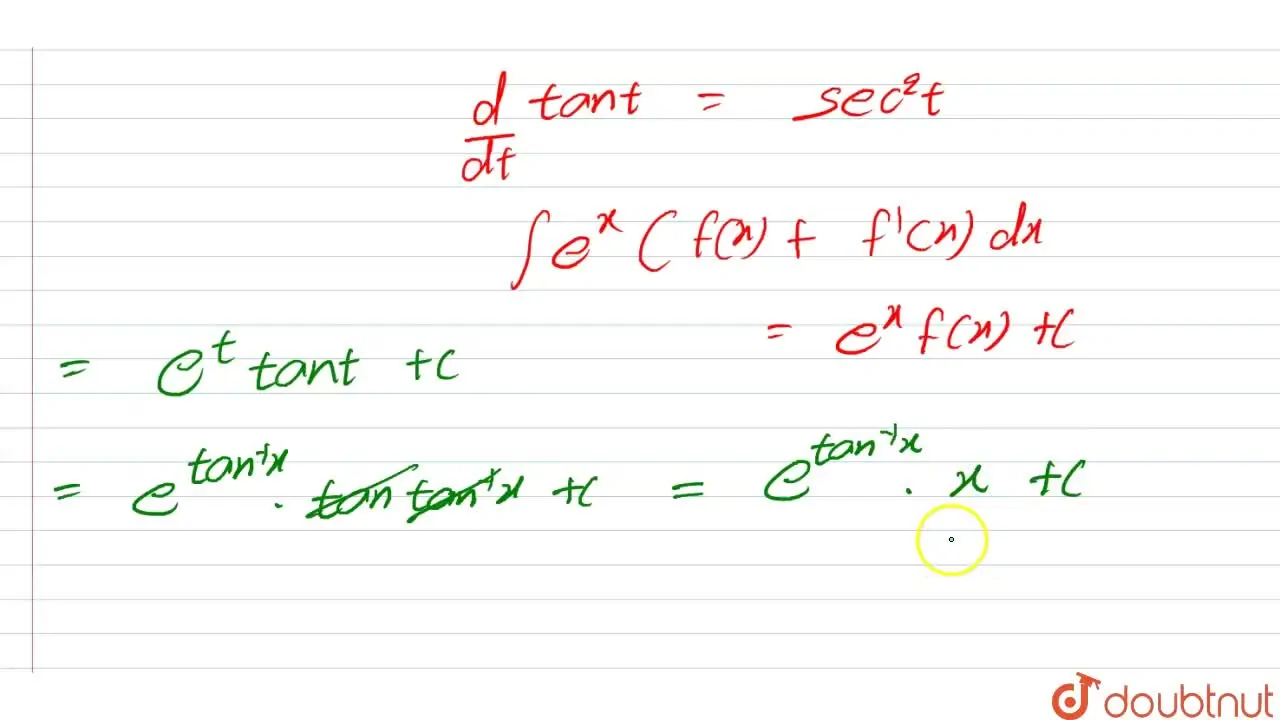 d/dt tant = sec²t
∫eˣ (f(x) + f'(x) dx
= eˣ f(x) + C
= eᵗ tant + C
= e^(tan⁻¹x) . tan tan⁻¹x + C = e^(tan⁻¹x) . x + C
doubtnut